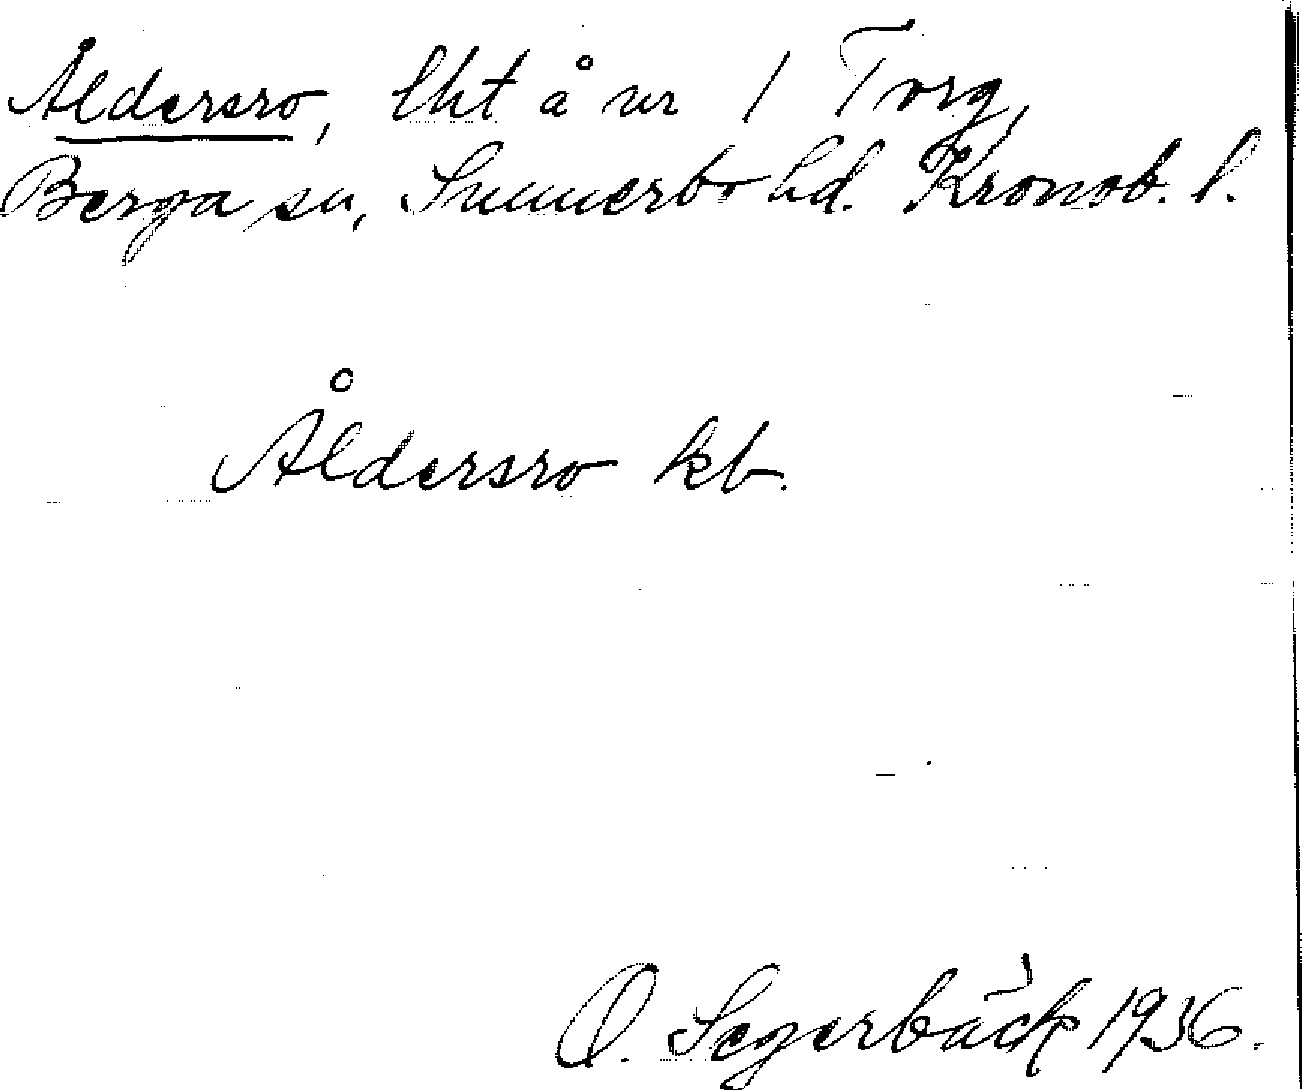 Åldersro, lht å nr 1 Torg,
Berga sn, Sunnerbo hd. Kronob. l.
Åldersro kb.
O. Segerbäck 1936.